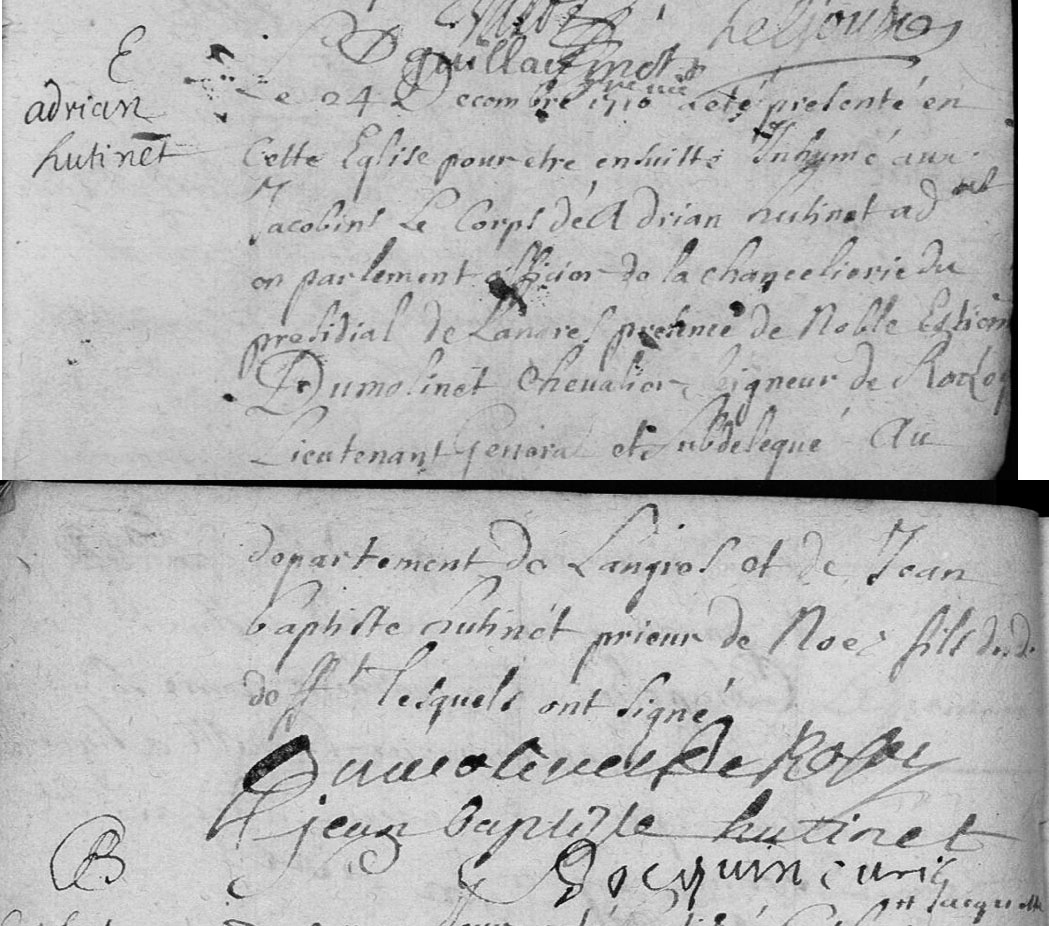 E
adrian
hutinet
D guillauminot
Le 24 Decembre 1710 a eté presenté en
Cette Eglise pour etre ensuitte Inhumé aux
Jacobins Le Corps de Adrian hutinet ad^at
en parlement officier de la chancelierie du
presidial de Langres presence de Noble Estienne
Dumolinet Chevalier seigneur de Rosoy
Lieutenant General et subdelegué Au
departement de Langres et de Jean
baptiste hutinet prieur de Noe fils dud.
deff^t lesquels ont signé
Dumolinet De Rosoy
jean baptiste hutinet
B
Bocquin curé
et Jacquette